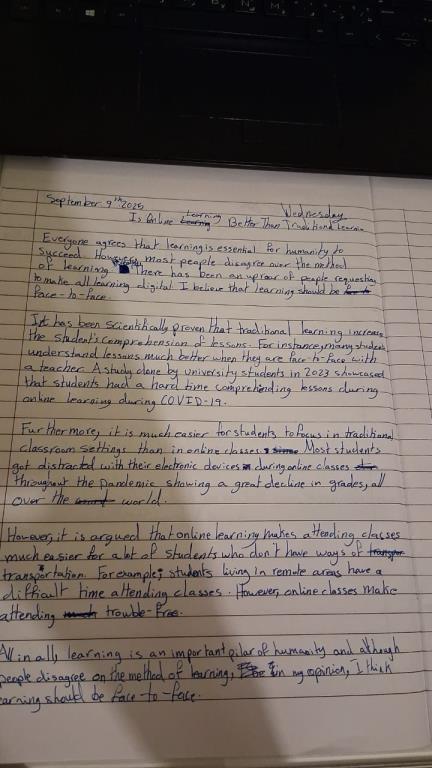 September 9th 2025 Wednesday
Is Online Learning Better Than Traditional Learnin
Everyone agrees that learning is essential for humanity to
succeed. However, most people disagree over the method
of learning. There has been an uproar of people requesting
to make all learning digital. I believe that learning should be
face-to-face.
It has been scientifically proven that traditional learning increase
the student's comprehension of lessons. For instance, many students
understand lessons much better when they are face-to-face with
a teacher. A study done by university students in 2023 showcased
that students had a hard time comprehending lessons during
online learning during COVID-19.
Furthermore, it is much easier for students to focus in traditional
classroom settings than in online classes. Most students
got distracted with their electronic devices during online classes
throughout the pandemic showing a great decline in grades, all
over the world.
However, it is argued that online learning makes attending classes
much easier for a lot of students who don't have ways of
transportation. For example, students living in remote areas have a
difficult time attending classes. However, online classes make
attending trouble-free.
All in all, learning is an important pilar of humanity and although
people disagree on the method of learning, in my opinion, I think
earning should be face-to-face.